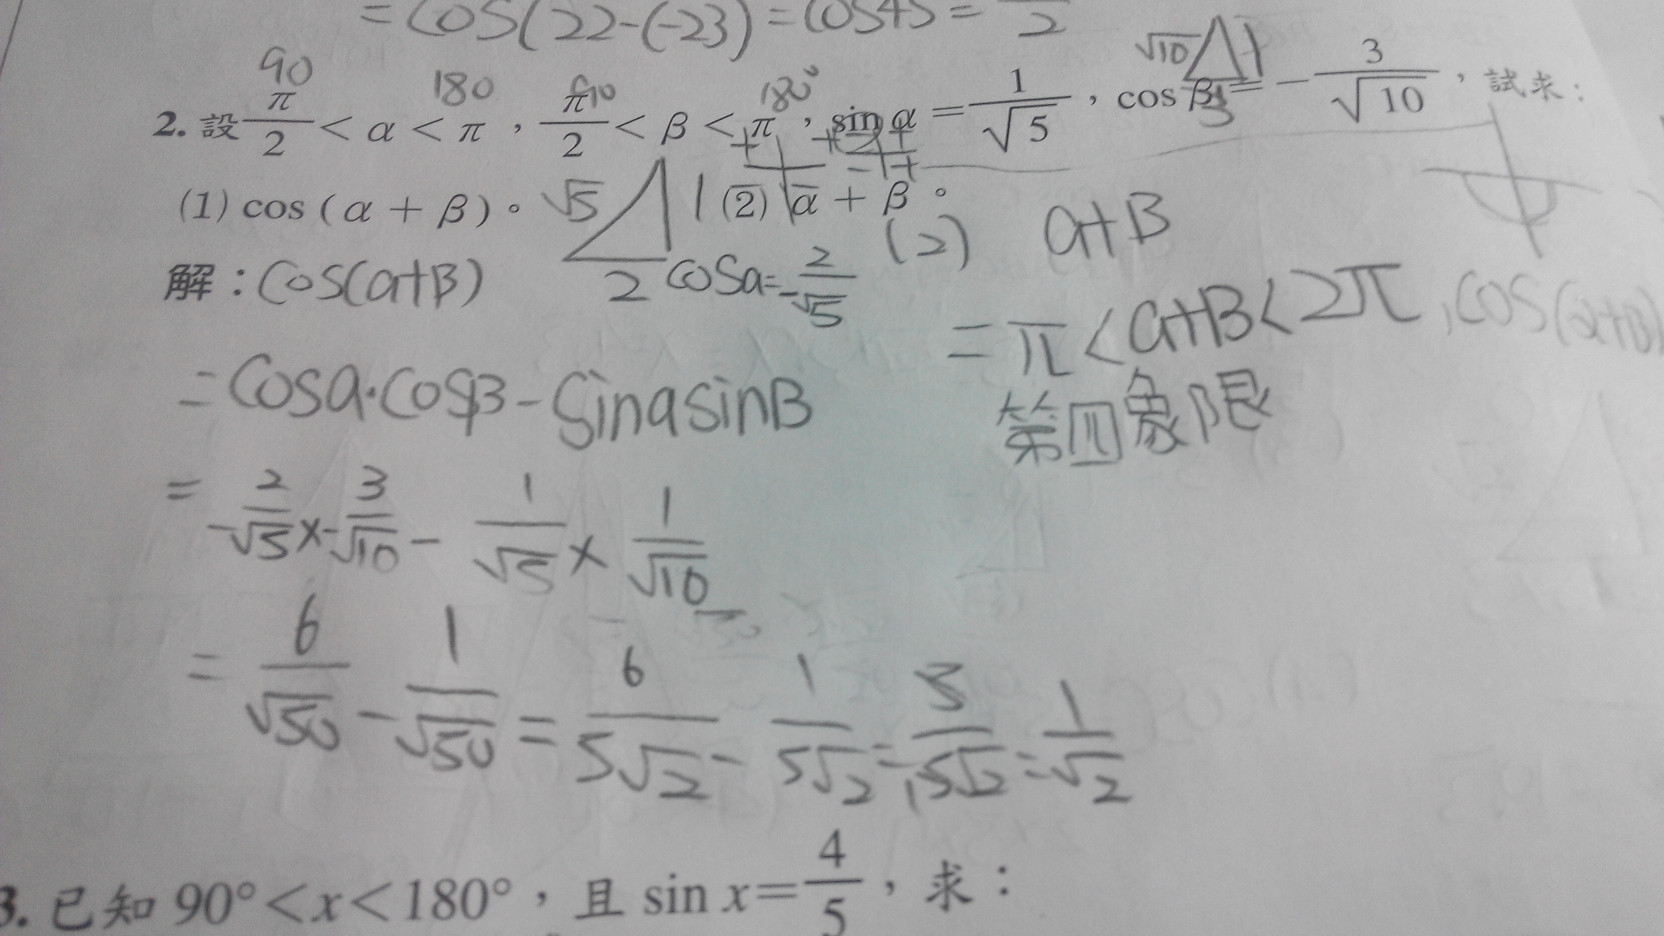 = cos(22-(-23) = cos45 = /2
90 180 90 180° √10 1 3
2. 設 π/2 < α < π , π/2 < β < π , sin α = 1/√5 , cos β = - 3/√10 , 試求:
(1) cos ( α + β ) 。 √5 1 (2) α + β 。
解 : cos(a+β) 2 cosa=-2/√5 (2) a+B
= π < a+B < 2π , cos(a+B)
= cosa·cosβ - sinasinB 第四象限
= -2/√5 × -3/√10 - 1/√5 × 1/√10
= 6/√50 - 1/√50 = 6/5√2 - 1/5√2 = 5/5√2 = 1/√2
3. 已知 90° < x < 180° , 且 sin x = 4/5 , 求 :